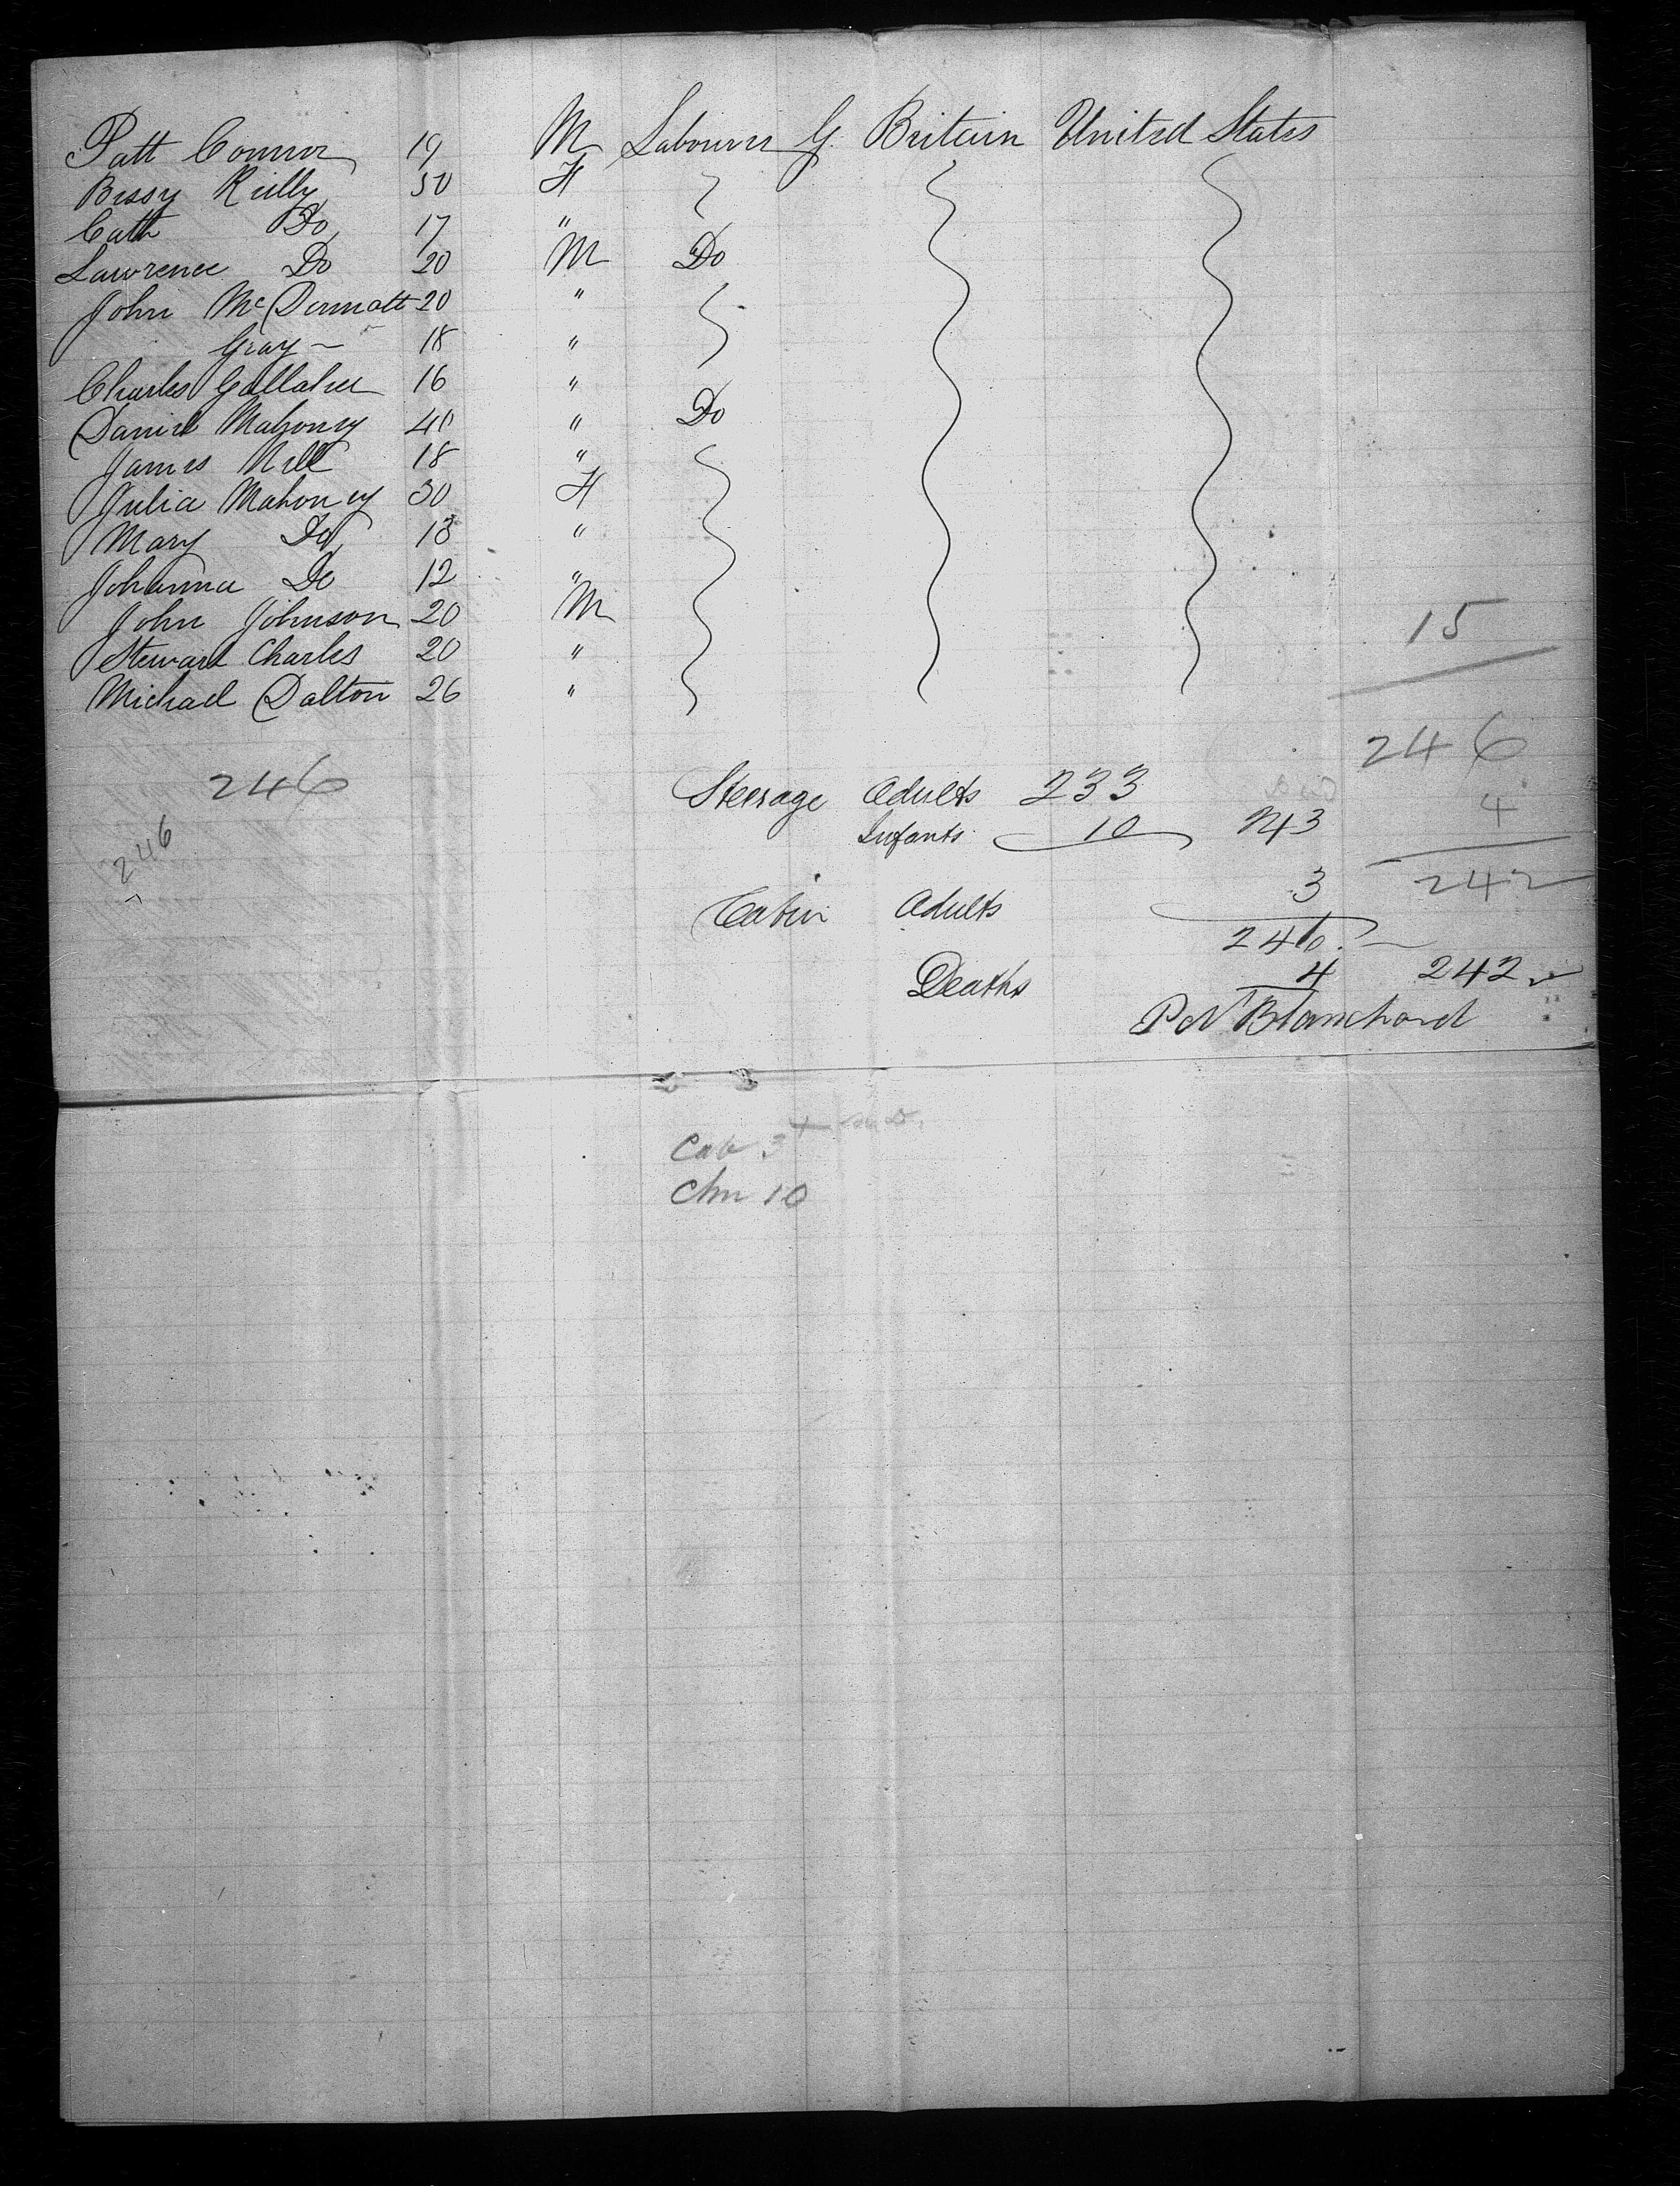 Patt Connor 19 M Labourer G. Britain United States
Bessy Reilly 50 F
Cath Do 17 "
Lawrence Do 20 M Do
John McDermott 20 "
Gray — 18 "
Charles Gallaher 16 "
Daniel Mahoney 40 " Do
James Nell 18 "
Julia Mahoney 30 F
Mary Do 13 "
Johanna Do 12 "
John Johnson 20 M
Stewart Charles 20 "
Michael Dalton 26 "
15
246
246
Steerage Adults 233
4
Infants 10 243
246
242
Cabin Adults 3
246
Deaths 4 242
Blanchard
Cab 3
Chn 10